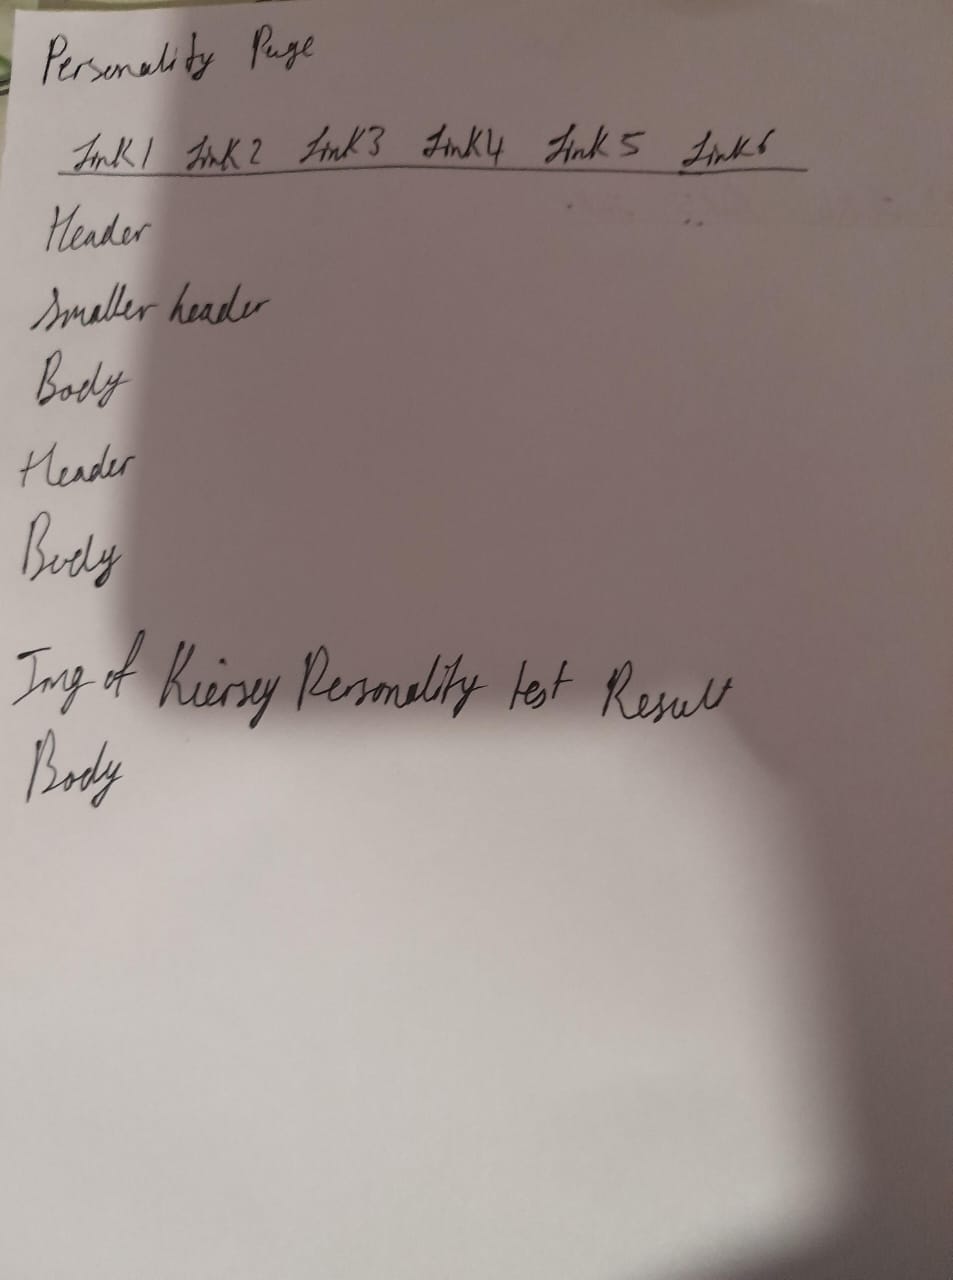 Personality Page
Link 1 Link 2 Link 3 Link 4 Link 5 Link 6
Header
Smaller header
Body
Header
Body
Img of Kiersey Personality test Result
Body